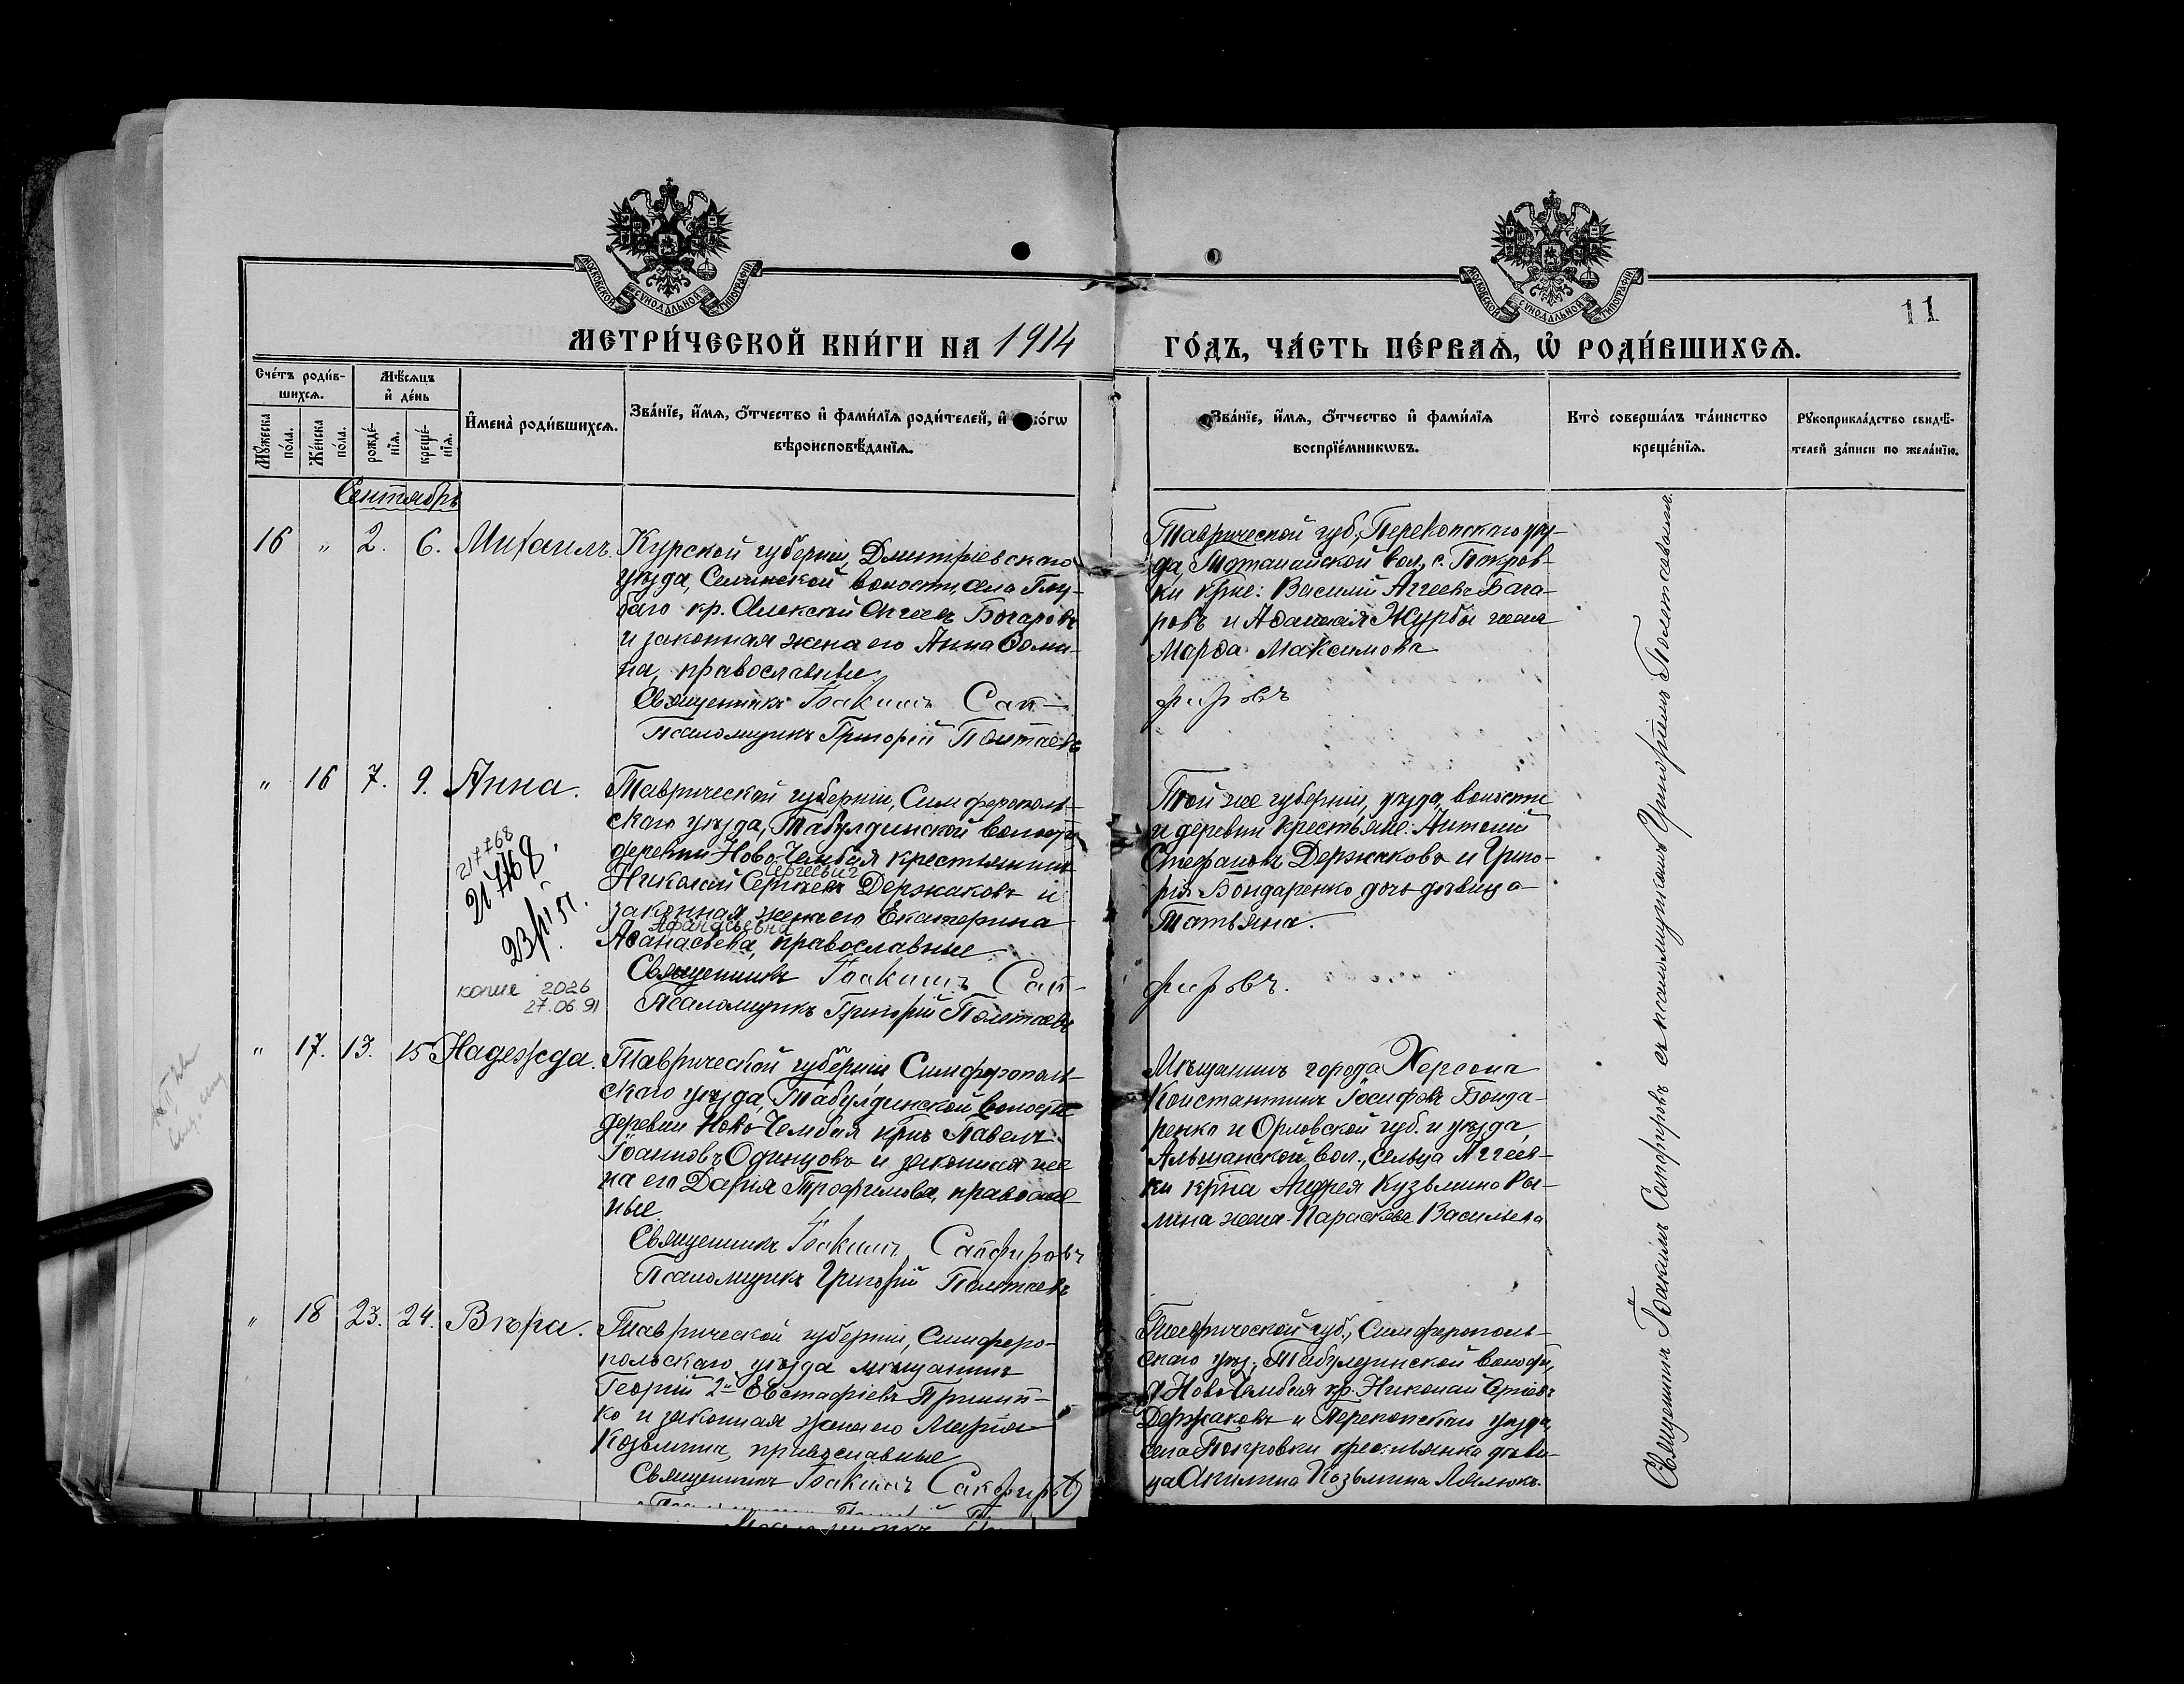 МОСКОВСКОЙ СѴНОДАЛЬНОЙ ТИПОГРАФІИ
МОСКОВСКОЙ СѴНОДАЛЬНОЙ ТИПОГРАФІИ
11
МЕТРИ́ЧЕСКОЙ КНИ́ГИ НА 1914 ГО́ДЪ, ЧА́СТЬ ПЕ́РВАѦ, Ѡ РОДИ́ВШИХСѦ.
Сче́тъ роди́в-
шихсѧ.
Мꙋ́жеска
по́ла.
Же́нска
по́ла.
Мѣ́сѧцъ
и҆ де́нь
рожде́-
нїѧ.
креще́-
нїѧ.
И҆мена̀ роди́вшихсѧ.
Зва́нїе, и҆́мѧ, ѻ҆́тчество и҆ фами́лїѧ роди́телей, и҆
вѣроисповѣ́данїѧ.
Зва́нїе, и҆́мѧ, ѻ҆́тчество и҆ фами́лїѧ
воспрїе́мникѡвъ.
Кто̀ соверша́лъ та́инство
креще́нїѧ.
Рꙋкоприкла́дство свидѣ́-
телей за́писи по жела́нїю.
Сентябрь
16 " 2. 6. Михаилъ.
Курской губерніи, Дмитріевскаго
уѣзда, Селинской волости, села Глу-
баго кр. Алексѣй Агеевъ Богаровъ
и законная жена его Анна
на, православные.
Священникъ Іоакимъ Сап-
Псаломщикъ Григорій Полтаевъ
Таврической губ., Перекопскаго уѣз-
да, вол., с. Покров-
ки крне: Василий Аггеевъ Бага-
ровъ и Журбы жена
Марфа Максимова
фировъ
" 16 7. 9. Анна.
217768
217768.
копия 2026
27.06.91
Таврической губерніи, Симферополь-
скаго уѣзда, Табулдинской волости,
деревни Ново-Чембая крестьянинъ
Сергеевич
Николай Сергіевъ Держаковъ и
законная жена его Екатерина
Афанасьевна
Аѳанасьева, православные.
Священникъ Іоакимъ Сап-
Псаломщикъ Григорій Полтаевъ
Той же губерніи, уѣзда, волости
и деревни крестьяне: Антоній
Стефановъ Держаковъ и Григо-
рія Бондаренко дочь дѣвица
Татьяна.
фировъ.
" 17. 13. 15 Надежда.
Таврической губерніи, Симферополь-
скаго уѣзда, Табулдинской волости
деревни Ново-Чембая крнъ Павелъ
Іоанновъ Одинцовъ и законная же-
на его Дарія Трофимова, православ-
ные.
Священникъ Іоакимъ Сапфировъ
Псаломщикъ Григорій Полтаевъ
Мѣщанинъ города Херсона
Константинъ Іосифовъ Бонда-
ренко и Орловской губ. и уѣзда,
Альшанской вол., сельца Аггеев-
ки крна Андрея Кузьмина Ры-
мина жена Параскева Васильева
" 18 23. 24. Вѣра.
Таврической губерніи, Симферо-
польскаго уѣзда мѣщанинъ
Георгій 2й Евстафіевъ
ко и законная жена его Марѳа
Козьмина, православные
Священникъ Іоакимъ Сапфировъ
Таврической губ., Симферополь-
скаго уѣз., Табулдинской волости,
д. Ново-Чембая кр. Николай Сергіевъ
Держаковъ и Перекопскаго уѣзда,
села Покровки крестьянка дѣви-
ца Акилина Козьмина
Священникъ Іоакимъ Сапфировъ съ псаломщикомъ Григоріемъ Полтаевымъ.